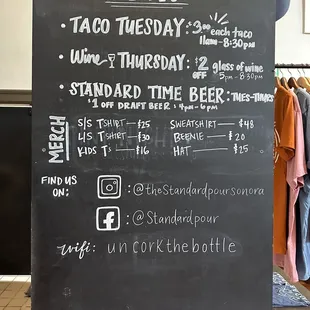 • TACO TUESDAY: $3.00 each taco
11am-8:30pm
• Wine THURSDAY: $2 OFF glass of wine
5pm-8:30pm
• STANDARD TIME BEER: TUES-THURS
$1 OFF DRAFT BEER: 4pm-6pm
MERCH
S/S TSHIRT — $25 SWEATSHIRT — $48
L/S TSHIRT — $30 BEENIE — $20
KIDS T'S — $16 HAT — $25
FIND US ON:
: @theStandardpoursonora
: @Standardpour
wifi: uncorkthebottle